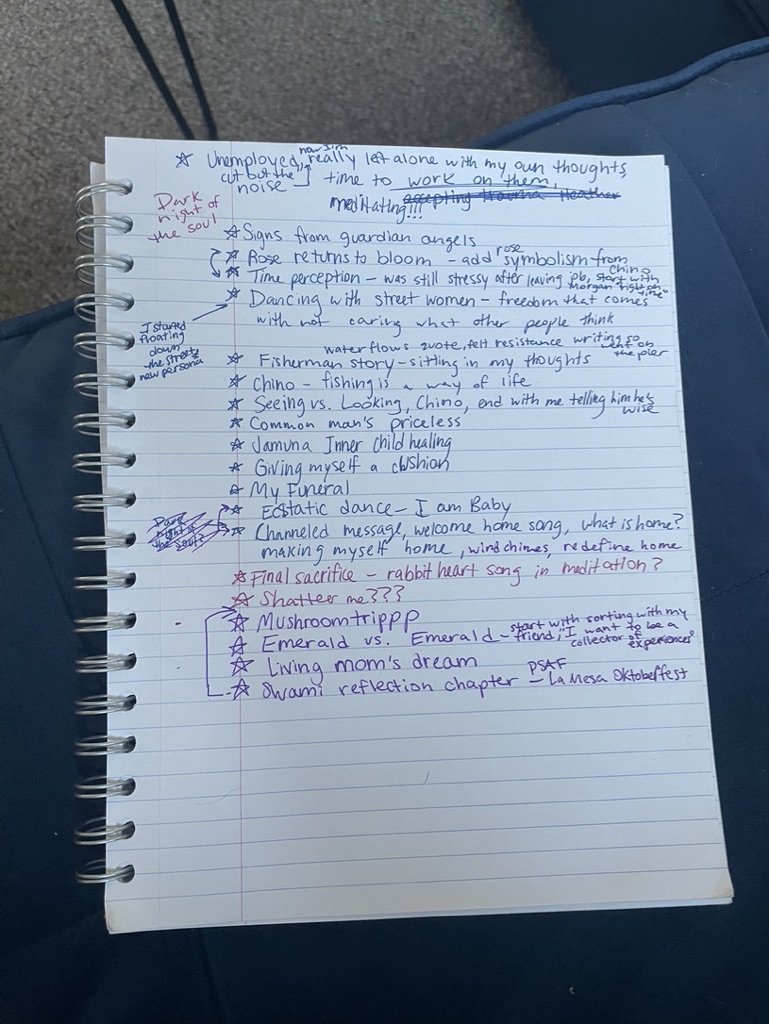 ☆ Unemployed, now I'm really left alone with my own thoughts,
cut out the noise time to work on them,
accepting trauma
meditating!!!
Dark night of the soul
☆ Signs from guardian angels
☆ Rose returns to bloom - add rose symbolism from Chino
☆ Time perception - was still stressy after leaving job, start with Morgan "right on time"
☆ Dancing with street women - freedom that comes
with not caring what other people think
I started floating down the streets new persona
water flows quote, felt resistance writing so went on the pier
☆ Fisherman story - sitting in my thoughts
☆ Chino - fishing is a way of life
☆ Seeing vs. Looking, Chino, end with me telling him he's wise
☆ Common man's priceless
☆ Jamuna Inner child healing
☆ Giving myself a cushion
☆ My Funeral
☆ Ecstatic dance - I am Baby
Dark night of the soul?
☆ Channeled message, welcome home song, what is home?
making myself home, windchimes, redefine home
☆ Final sacrifice - rabbit heart song in meditation?
☆ Shatter me???
☆ Mushroom trippp
☆ Emerald vs. Emerald - start with sorting with my friend, "I want to be a collector of experiences"
☆ Living mom's dream
☆ Swami reflection chapter - PSAF La Mesa Oktoberfest